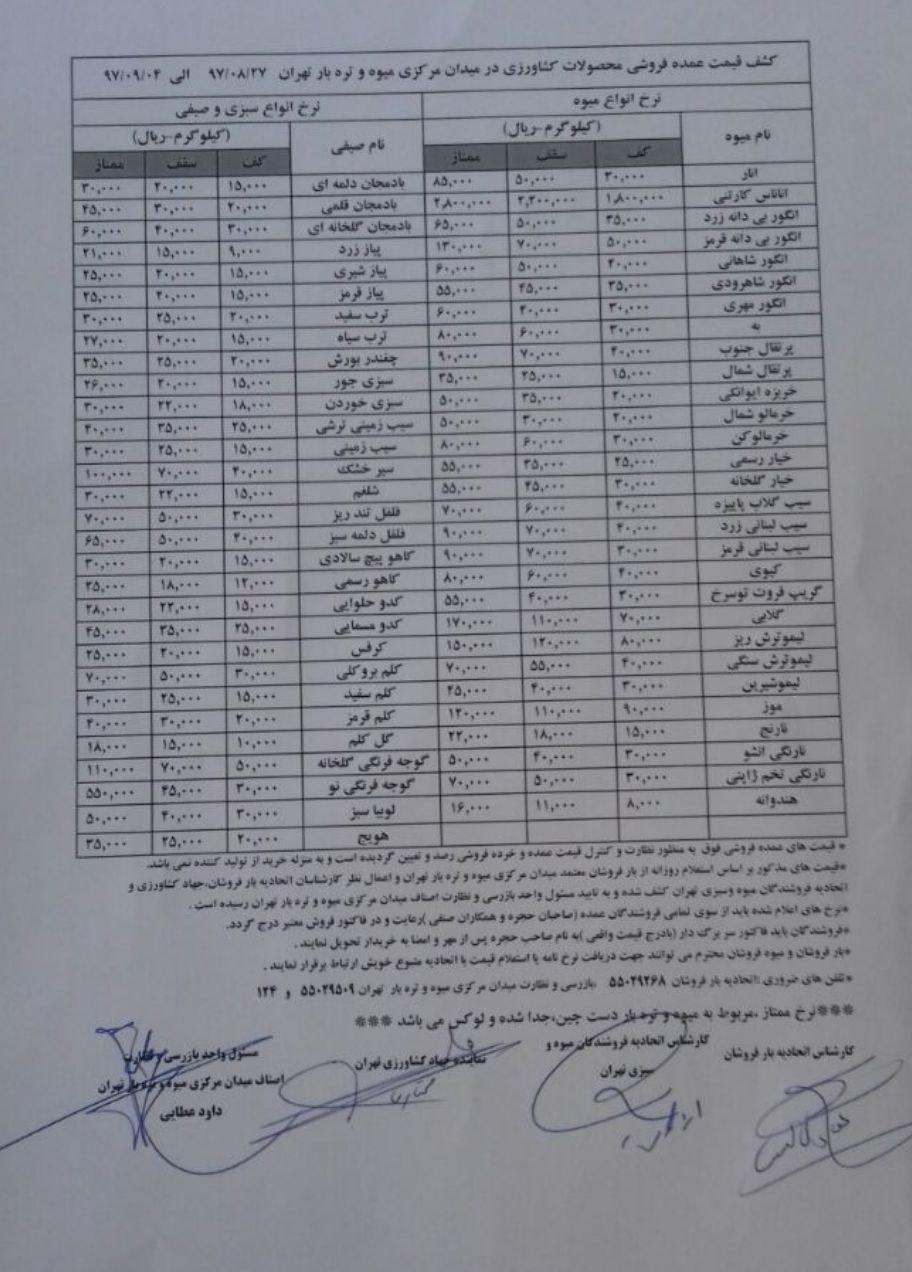 کشف قیمت عمده فروشی محصولات کشاورزی در میدان مرکزی میوه و تره بار تهران ۹۷/۰۸/۲۷ الی ۹۷/۰۹/۰۴
نرخ انواع میوه نرخ انواع سبزی و صیفی
نام میوه (کیلوگرم-ریال) نام صیفی (کیلوگرم-ریال)
کف سقف ممتاز کف سقف ممتاز
انار ۳۰,۰۰۰ ۵۰,۰۰۰ ۸۵,۰۰۰ بادمجان دلمه ای ۱۵,۰۰۰ ۲۰,۰۰۰ ۳۰,۰۰۰
اناناس کارتنی ۱,۸۰۰,۰۰۰ ۲,۲۰۰,۰۰۰ ۲,۸۰۰,۰۰۰ بادمجان قلمی ۲۰,۰۰۰ ۳۰,۰۰۰ ۴۵,۰۰۰
انگور بی دانه زرد ۳۵,۰۰۰ ۵۰,۰۰۰ ۶۵,۰۰۰ بادمجان گلخانه ای ۳۰,۰۰۰ ۴۰,۰۰۰ ۶۰,۰۰۰
انگور بی دانه قرمز ۵۰,۰۰۰ ۷۰,۰۰۰ ۱۳۰,۰۰۰ پیاز زرد ۹,۰۰۰ ۱۵,۰۰۰ ۲۱,۰۰۰
انگور شاهانی ۴۰,۰۰۰ ۵۰,۰۰۰ ۶۰,۰۰۰ پیاز شیری ۱۵,۰۰۰ ۲۰,۰۰۰ ۲۵,۰۰۰
انگور شاهرودی ۳۵,۰۰۰ ۴۵,۰۰۰ ۵۵,۰۰۰ پیاز قرمز ۱۵,۰۰۰ ۲۰,۰۰۰ ۲۵,۰۰۰
انگور مهری ۳۰,۰۰۰ ۴۰,۰۰۰ ۶۰,۰۰۰ ترب سفید ۲۰,۰۰۰ ۲۵,۰۰۰ ۳۰,۰۰۰
به ۳۰,۰۰۰ ۶۰,۰۰۰ ۸۰,۰۰۰ ترب سیاه ۱۵,۰۰۰ ۲۰,۰۰۰ ۲۷,۰۰۰
پرتقال جنوب ۴۰,۰۰۰ ۷۰,۰۰۰ ۹۰,۰۰۰ چغندر بورش ۲۰,۰۰۰ ۲۵,۰۰۰ ۳۵,۰۰۰
پرتقال شمال ۱۵,۰۰۰ ۲۵,۰۰۰ ۳۵,۰۰۰ سبزی جور ۱۵,۰۰۰ ۲۰,۰۰۰ ۲۶,۰۰۰
خربزه ایوانکی ۲۰,۰۰۰ ۳۵,۰۰۰ ۵۰,۰۰۰ سبزی خوردن ۱۸,۰۰۰ ۲۲,۰۰۰ ۳۰,۰۰۰
خرمالو شمال ۲۰,۰۰۰ ۳۰,۰۰۰ ۵۰,۰۰۰ سیب زمینی ترشی ۲۵,۰۰۰ ۳۵,۰۰۰ ۴۰,۰۰۰
خرمالوکن ۳۰,۰۰۰ ۶۰,۰۰۰ ۸۰,۰۰۰ سیب زمینی ۱۵,۰۰۰ ۲۵,۰۰۰ ۳۰,۰۰۰
خیار رسمی ۲۵,۰۰۰ ۳۵,۰۰۰ ۵۵,۰۰۰ سیر خشک ۴۰,۰۰۰ ۷۰,۰۰۰ ۱۰۰,۰۰۰
خیار گلخانه ۳۰,۰۰۰ ۴۵,۰۰۰ ۵۵,۰۰۰ شلغم ۱۵,۰۰۰ ۲۲,۰۰۰ ۳۰,۰۰۰
سیب گلاب پاییزه ۴۰,۰۰۰ ۶۰,۰۰۰ ۷۰,۰۰۰ فلفل تند ریز ۳۰,۰۰۰ ۵۰,۰۰۰ ۷۰,۰۰۰
سیب لبنانی زرد ۴۰,۰۰۰ ۷۰,۰۰۰ ۹۰,۰۰۰ فلفل دلمه سبز ۴۰,۰۰۰ ۵۰,۰۰۰ ۶۵,۰۰۰
سیب لبنانی قرمز ۳۰,۰۰۰ ۷۰,۰۰۰ ۹۰,۰۰۰ کاهو پیچ سالادی ۱۵,۰۰۰ ۲۰,۰۰۰ ۳۰,۰۰۰
کیوی ۴۰,۰۰۰ ۶۰,۰۰۰ ۸۰,۰۰۰ کاهو رسمی ۱۲,۰۰۰ ۱۸,۰۰۰ ۲۵,۰۰۰
گریپ فروت توسرخ ۳۰,۰۰۰ ۴۰,۰۰۰ ۵۵,۰۰۰ کدو حلوایی ۱۵,۰۰۰ ۲۲,۰۰۰ ۲۸,۰۰۰
گلابی ۷۰,۰۰۰ ۱۱۰,۰۰۰ ۱۷۰,۰۰۰ کدو مسمایی ۲۵,۰۰۰ ۳۵,۰۰۰ ۴۵,۰۰۰
لیموترش ریز ۸۰,۰۰۰ ۱۲۰,۰۰۰ ۱۵۰,۰۰۰ کرفس ۱۵,۰۰۰ ۲۰,۰۰۰ ۲۵,۰۰۰
لیموترش سنگی ۴۰,۰۰۰ ۵۵,۰۰۰ ۷۰,۰۰۰ کلم بروکلی ۳۰,۰۰۰ ۵۰,۰۰۰ ۷۰,۰۰۰
لیموشیرین ۳۰,۰۰۰ ۴۰,۰۰۰ ۴۵,۰۰۰ کلم سفید ۱۵,۰۰۰ ۲۵,۰۰۰ ۳۰,۰۰۰
موز ۹۰,۰۰۰ ۱۱۰,۰۰۰ ۱۲۰,۰۰۰ کلم قرمز ۲۰,۰۰۰ ۳۰,۰۰۰ ۴۰,۰۰۰
نارنج ۱۵,۰۰۰ ۱۸,۰۰۰ ۲۲,۰۰۰ گل کلم ۱۰,۰۰۰ ۱۵,۰۰۰ ۱۸,۰۰۰
نارنگی انشو ۳۰,۰۰۰ ۴۰,۰۰۰ ۵۰,۰۰۰ گوجه فرنگی گلخانه ۵۰,۰۰۰ ۷۰,۰۰۰ ۱۱۰,۰۰۰
نارنگی تخم ژاپنی ۳۰,۰۰۰ ۵۰,۰۰۰ ۷۰,۰۰۰ گوجه فرنگی نو ۳۰,۰۰۰ ۴۵,۰۰۰ ۵۵۰,۰۰۰
هندوانه ۸,۰۰۰ ۱۱,۰۰۰ ۱۶,۰۰۰ لوبیا سبز ۳۰,۰۰۰ ۴۰,۰۰۰ ۵۰,۰۰۰
هویج ۲۰,۰۰۰ ۲۵,۰۰۰ ۳۵,۰۰۰
* قیمت های عمده فروشی فوق به منظور نظارت و کنترل قیمت عمده و خرده فروشی رصد و تعیین گردیده است و به منزله خرید از تولید کننده نمی باشد.
*قیمت های مذکور بر اساس استعلام روزانه از بار فروشان معتمد میدان مرکزی میوه و تره بار تهران و اعمال نظر کارشناسان اتحادیه بار فروشان،جهاد کشاورزی و
اتحادیه فروشندگان میوه وسبزی تهران کشف شده و به تایید مسئول واحد بازرسی و نظارت اصناف میدان مرکزی میوه و تره بار تهران رسیده است .
*نرخ های اعلام شده باید از سوی تمامی فروشندگان عمده (صاحبان حجره و همکاران صنفی )رعایت و در فاکتور فروش معتبر درج گردد.
*فروشندگان باید فاکتور سر برگ دار (بادرج قیمت واقعی )به نام صاحب حجره پس از مهر و امضا به خریدار تحویل نمایند .
*بار فروشان و میوه فروشان محترم می توانند جهت دریافت نرخ نامه یا استعلام قیمت با اتحادیه متبوع خویش ارتباط برقرار نمایند .
*تلفن های ضروری :اتحادیه بار فروشان ۵۵۰۲۹۲۶۸ ،بازرسی و نظارت میدان مرکزی میوه و تره بار تهران ۵۵۰۲۹۵۰۹ و ۱۲۴
***نرخ ممتاز ،مربوط به میوه و تره بار دست چین،جدا شده و لوکس می باشد ***
کارشناس اتحادیه بار فروشان
کارشناس اتحادیه فروشندگان میوه و
سبزی تهران
نماینده جهاد کشاورزی تهران
مسئول واحد بازرسی و نظارت
اصناف میدان مرکزی میوه و تره بار تهران
داود عطایی